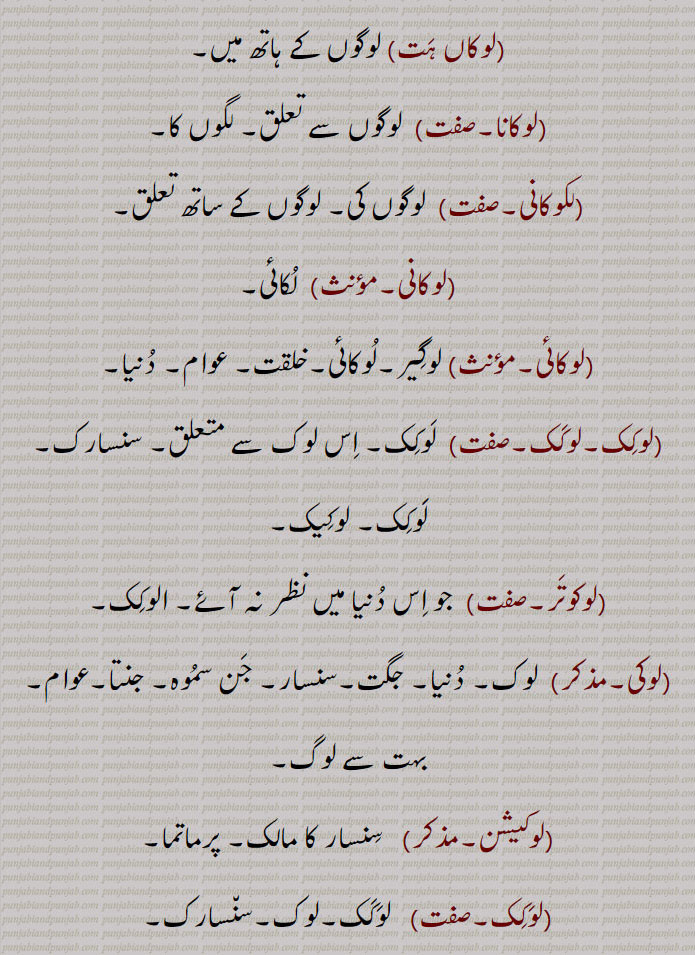 (لوکاں ہَت) لوگوں کے ہاتھ میں۔
(لوکانا۔صفت) لوگوں سے تعلق۔ لگوں کا۔
(لکوکانی۔صفت) لوگوں کی۔ لوگوں کے ساتھ تعلق۔
(لوکانی۔مؤنث) لُکائی۔
(لوکائی۔مؤنث) لوگیِر۔لُوکائی۔خلقت۔ عوام۔ دُنیا۔
(لوکِک۔لوکَک۔صفت) لَوکِک۔ اِس لوک سے متعلق۔ سنسارک۔
لَوکِک۔ لوکِیک۔
(لوکوتَر۔صفت) جو اِس دُنیا میں نظر نہ آئے۔ الوکِک۔
(لوکی۔مذکر) لوک۔ دُنیا۔ جگت۔سنسار۔ جَن سمُوہ۔ جنتا۔عوام۔
بہت سے لوگ۔
(لوکیشن۔مذکر) سِنسار کا مالک۔ پرماتما۔
(لوَکِک۔صفت) لوَکَک۔لوک۔سنّسارک۔